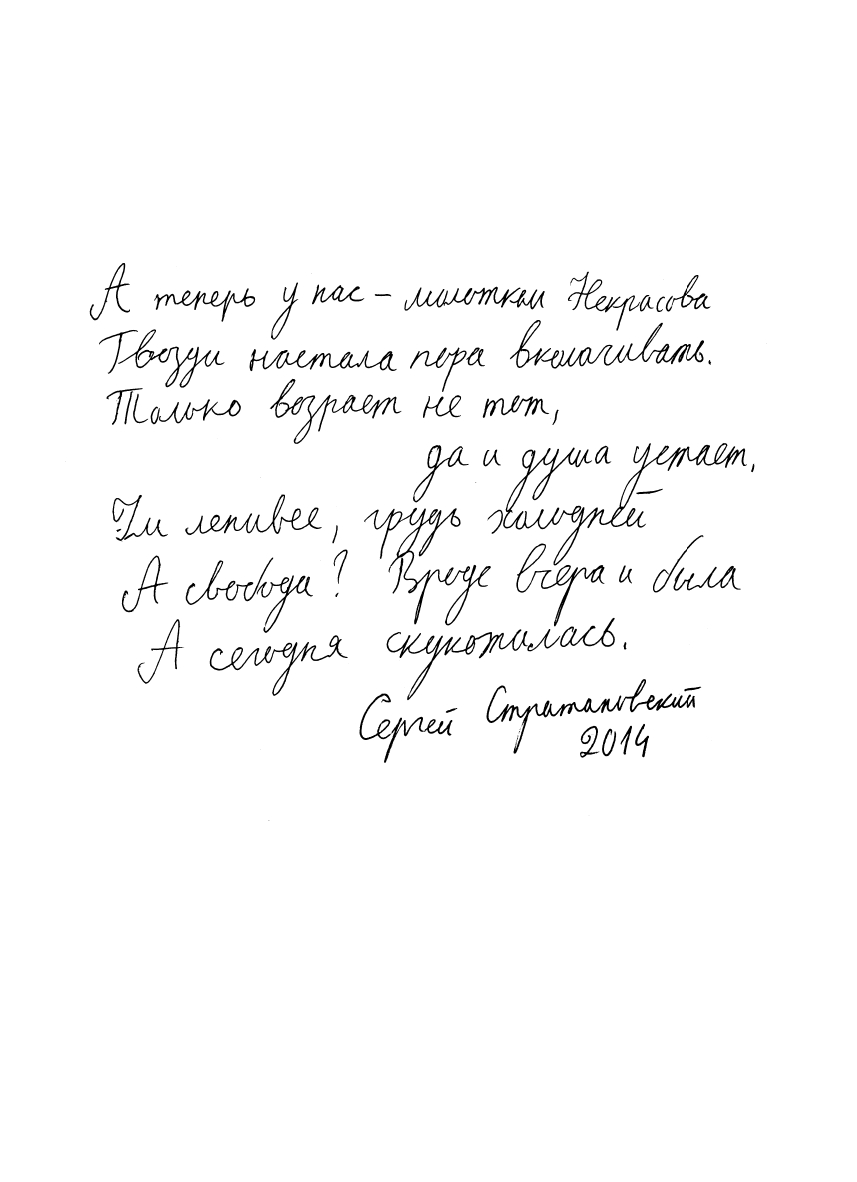 А теперь у нас – молотком Некрасова
Гвозди настала пора вколачивать.
Только возраст не тот,
да и душа устает,
Ум ленивее, грудь холодней
А свобода? Вроде вчера и была
А сегодня скукожилась.
Сергей Стратановский
2014